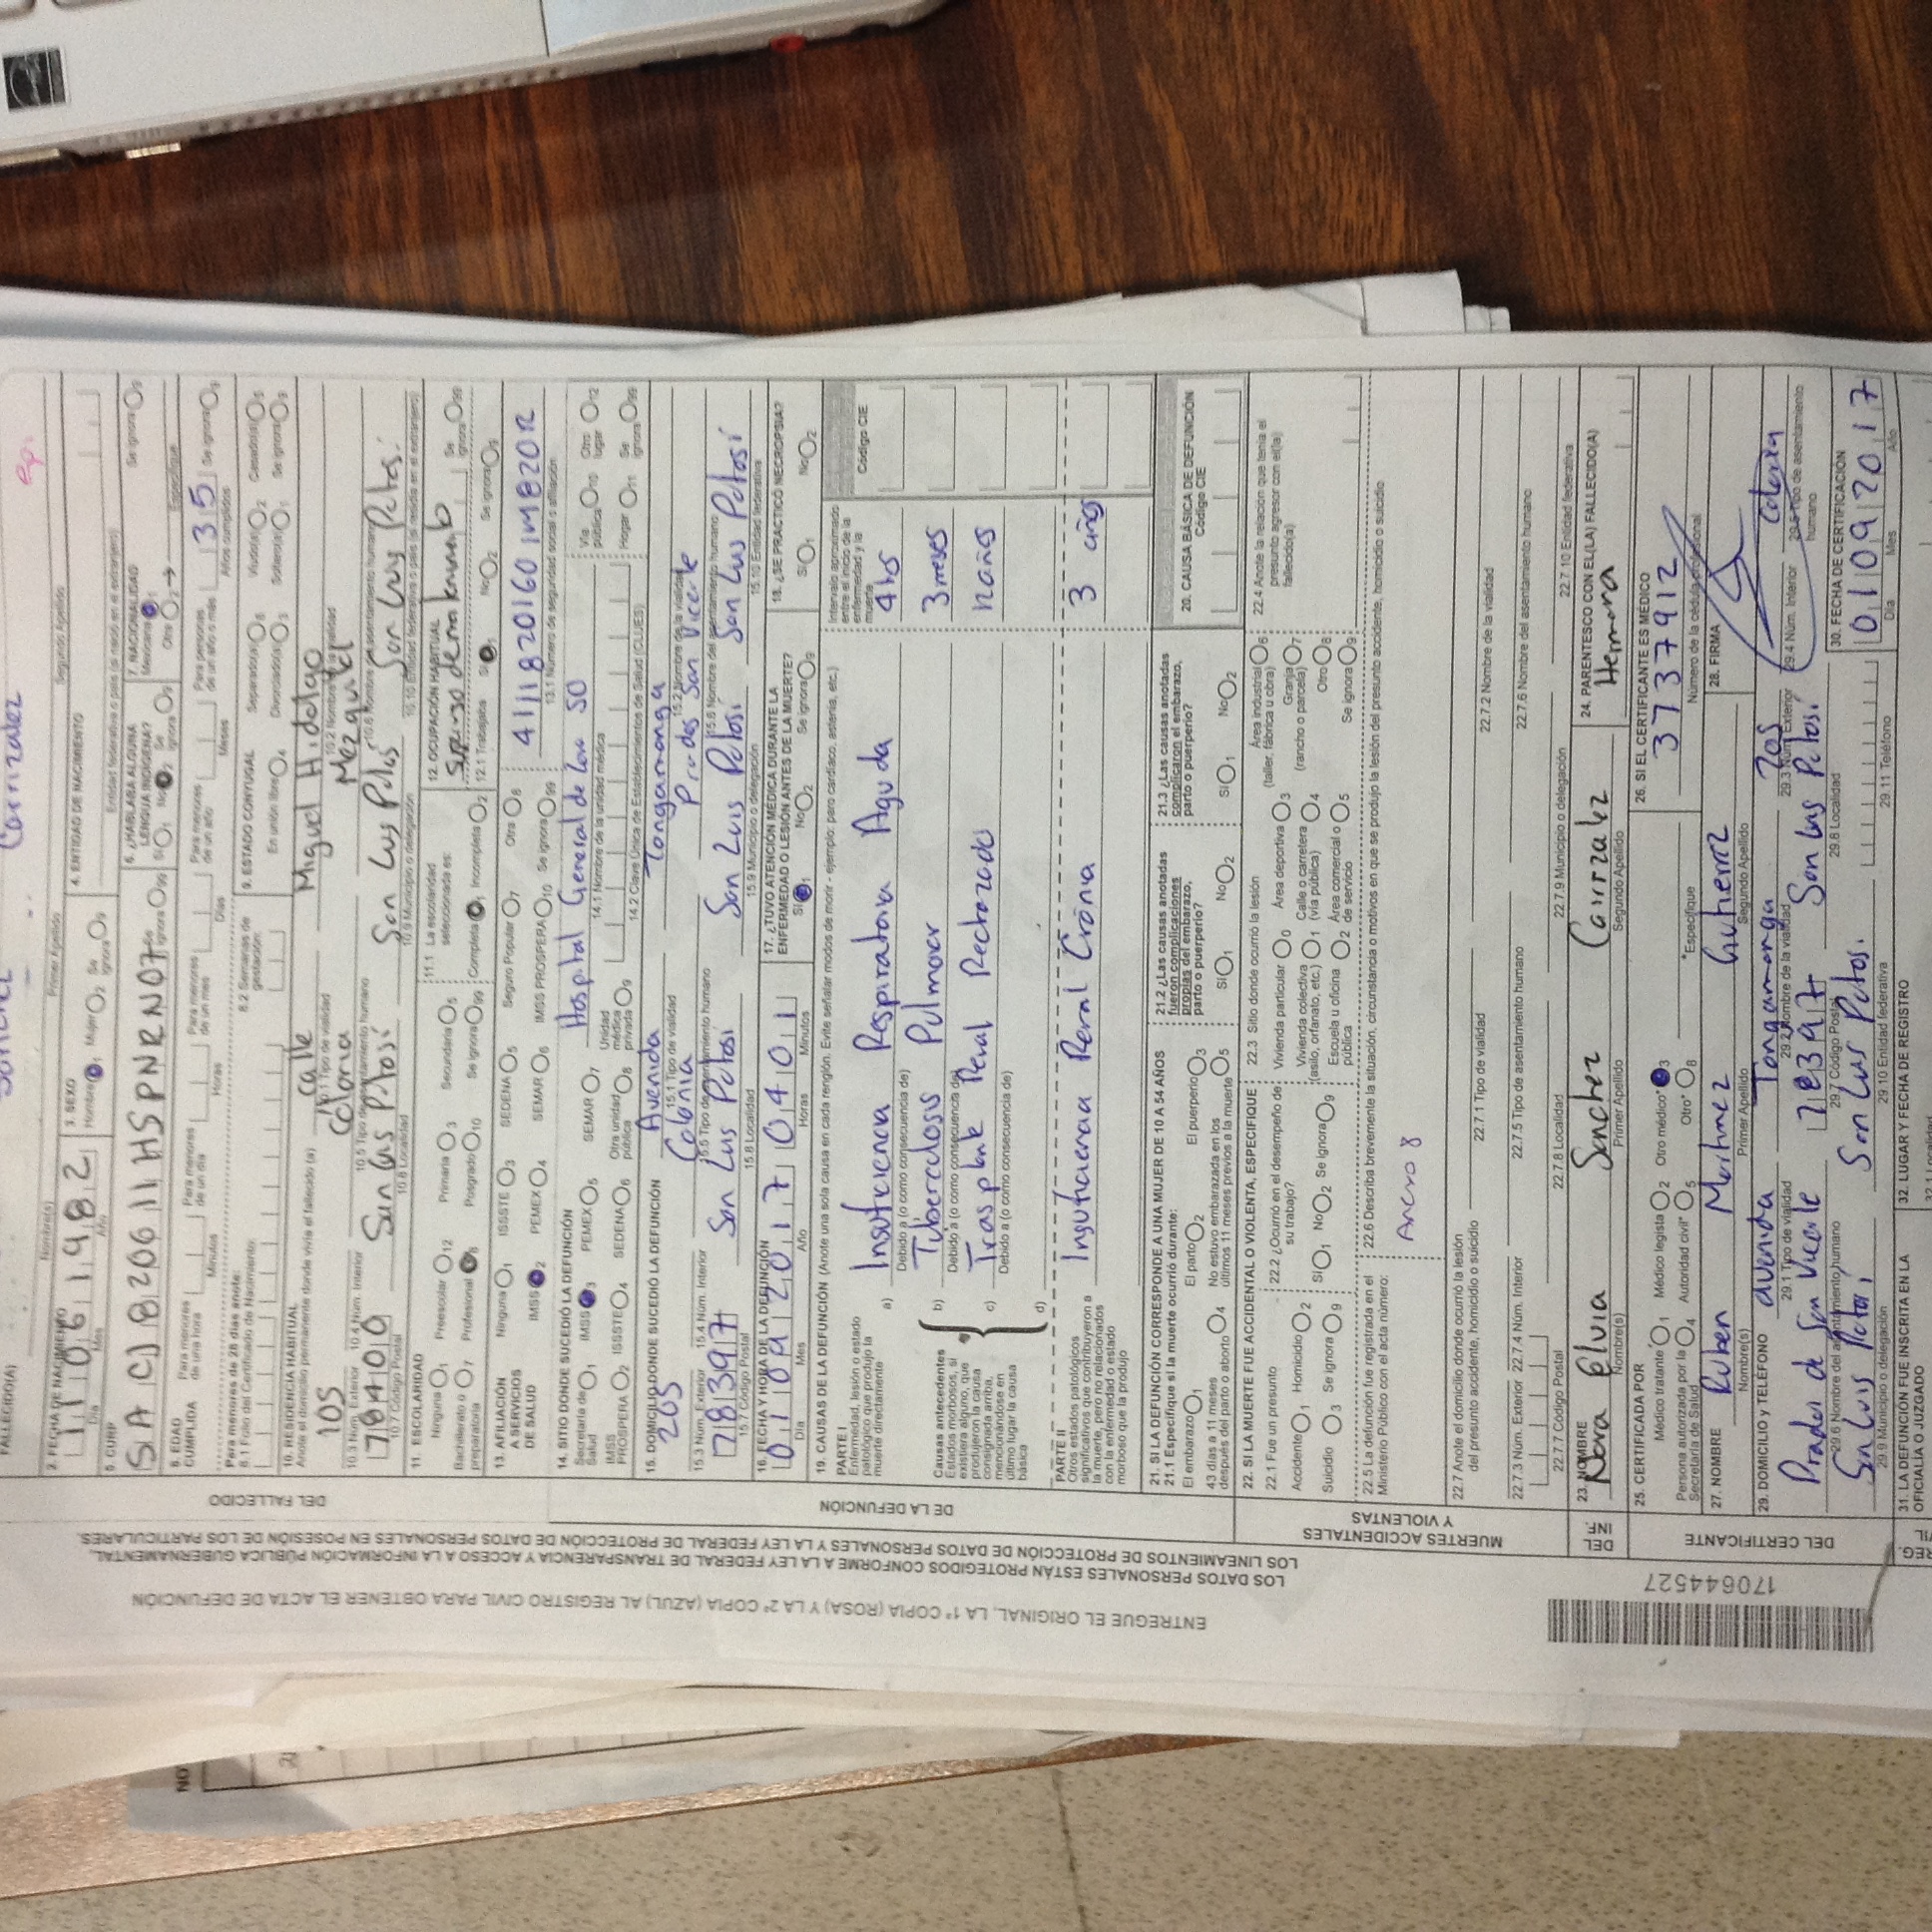 FALLECIDO(A)
Nombre(s) Primer Apellido Segundo Apellido
2. FECHA DE NACIMIENTO 11 06 1982
Día Mes Año
3. SEXO Hombre 1 Mujer 2 Se ignora 9
4. ENTIDAD DE NACIMIENTO
Entidad federativa o país (si nació en el extranjero)
5. CURP SACJ820611HSPNRN07 Se ignora 99
6. ¿HABLABA ALGUNA LENGUA INDÍGENA? Sí 1 No 2 Se ignora 9
7. NACIONALIDAD Mexicana 1 Otra 2 Especifique Se ignora 9
8. EDAD CUMPLIDA
Para menores de una hora Minutos
Para menores de un día Horas
Para menores de un mes Días
Para menores de un año Meses
Para personas de un año o más 35 Años cumplidos Se ignora 9
Para menores de 28 días anote:
8.1 Folio del Certificado de Nacimiento:
8.2 Semanas de gestación:
9. ESTADO CONYUGAL
En unión libre 4 Separado(a) 6 Divorciado(a) 3 Viudo(a) 2 Soltero(a) 1 Casado(a) 5 Se ignora 9
10. RESIDENCIA HABITUAL
Anote el domicilio permanente donde vivía el fallecido (a)
calle Miguel Hidalgo
10.1 Tipo de vialidad 10.2 Nombre de la vialidad
105 Colonia Mezquital
10.3 Núm. Exterior 10.4 Núm. Interior 10.5 Tipo de asentamiento humano 10.6 Nombre del asentamiento humano
78410 San Luis Potosí San Luis Potosí San Luis Potosí
10.7 Código Postal 10.8 Localidad 10.9 Municipio o delegación 10.10 Entidad federativa o país (si residía en el extranjero)
11. ESCOLARIDAD
Ninguna 1 Preescolar 12 Primaria 3 Secundaria 5
Bachillerato o preparatoria 7 Profesional 8 Posgrado 10 Se ignora 99
11.1 La escolaridad seleccionada es:
Completa 1 Incompleta 2
12. OCUPACIÓN HABITUAL Se ignora 99
12.1 Trabajaba Sí 1 No 2 Se ignora 9
13. AFILIACIÓN A SERVICIOS DE SALUD
Ninguna 1 ISSSTE 3 SEDENA 5 Seguro Popular 7 Otra 8
IMSS 2 PEMEX 4 SEMAR 6 IMSS PROSPERA 10 Se ignora 99
4111820160 1M820R
13.1 Número de seguridad social o afiliación
14. SITIO DONDE SUCEDIÓ LA DEFUNCIÓN
Secretaría de Salud 1 IMSS 3 PEMEX 5 SEMAR 7 Unidad médica privada 9
IMSS PROSPERA 2 ISSSTE 4 SEDENA 6 Otra unidad pública 8
Hospital General de Zona 50
14.1 Nombre de la unidad médica
14.2 Clave Única de Establecimientos de Salud (CLUES)
Vía pública 10 Otro lugar 12
Hogar 11 Se ignora 99
15. DOMICILIO DONDE SUCEDIÓ LA DEFUNCIÓN
Avenida Tangamanga
15.1 Tipo de vialidad 15.2 Nombre de la vialidad
205 Colonia Prados San Vicente
15.3 Núm. Exterior 15.4 Núm. Interior 15.5 Tipo de asentamiento humano 15.6 Nombre del asentamiento humano
78397 San Luis Potosí San Luis Potosí San Luis Potosí
15.7 Código Postal 15.8 Localidad 15.9 Municipio o delegación 15.10 Entidad federativa
16. FECHA Y HORA DE LA DEFUNCIÓN
01 09 2017 04 01
Día Mes Año Horas Minutos
17. ¿TUVO ATENCIÓN MÉDICA DURANTE LA ENFERMEDAD O LESIÓN ANTES DE LA MUERTE?
Sí 1 No 2 Se ignora 9
18. ¿SE PRACTICÓ NECROPSIA?
Sí 1 No 2
19. CAUSAS DE LA DEFUNCIÓN (Anote una sola causa en cada renglón. Evite señalar modos de morir - ejemplo: paro cardiaco, astenia, etc.)
Intervalo aproximado entre el inicio de la enfermedad y la muerte
Código CIE
PARTE I
Enfermedad, lesión o estado patológico que produjo la muerte directamente
a) Insuficiencia Respiratoria Aguda 4 hrs
Debido a (o como consecuencia de)
Causas antecedentes
Estados morbosos, si existiera alguno, que produjeron la causa consignada arriba, mencionándose en último lugar la causa básica
b) Tuberculosis Pulmonar 3 meses
Debido a (o como consecuencia de)
c) Trasplante Renal Rechazado
Debido a (o como consecuencia de)
d)
PARTE II
Otros estados patológicos significativos que contribuyeron a la muerte, pero no relacionados con la enfermedad o estado morboso que la produjo
Insuficiencia Renal Crónica 3 años
20. CAUSA BÁSICA DE DEFUNCIÓN
Código CIE
21. SI LA DEFUNCIÓN CORRESPONDE A UNA MUJER DE 10 A 54 AÑOS
21.1 Especifique si la muerte ocurrió durante:
El embarazo 1 El parto 2 El puerperio 3
43 días a 11 meses después del parto o aborto 4 No estuvo embarazada en los últimos 11 meses previos a la muerte 5
21.2 ¿Las causas anotadas fueron complicaciones propias del embarazo, parto o puerperio?
Sí 1 No 2
21.3 ¿Las causas anotadas complicaron el embarazo, parto o puerperio?
Sí 1 No 2
22. SI LA MUERTE FUE ACCIDENTAL O VIOLENTA, ESPECIFIQUE
22.1 Fue un presunto
Accidente 1 Homicidio 2
Suicidio 3 Se ignora 9
22.2 ¿Ocurrió en el desempeño de su trabajo?
Sí 1 No 2 Se ignora 9
22.3 Sitio donde ocurrió la lesión
Vivienda particular 0 Área deportiva 3 Área industrial (taller, fábrica u obra) 6
Vivienda colectiva (asilo, orfanato, etc.) 1 Calle o carretera (vía pública) 4 Granja (rancho o parcela) 7
Escuela u oficina pública 2 Área comercial o de servicio 5 Otro 8
Se ignora 9
22.4 Anote la relación que tenía el presunto agresor con el(la) fallecido(a)
22.5 La defunción fue registrada en el Ministerio Público con el acta número:
22.6 Describa brevemente la situación, circunstancia o motivos en que se produjo la lesión del presunto accidente, homicidio o suicidio
Anexo 8
22.7 Anote el domicilio donde ocurrió la lesión del presunto accidente, homicidio o suicidio
22.7.1 Tipo de vialidad 22.7.2 Nombre de la vialidad
22.7.3 Núm. Exterior 22.7.4 Núm. Interior 22.7.5 Tipo de asentamiento humano 22.7.6 Nombre del asentamiento humano
22.7.7 Código Postal 22.7.8 Localidad 22.7.9 Municipio o delegación 22.7.10 Entidad federativa
23. NOMBRE Nora Elvia Sanchez Carrizalez
Nombre(s) Primer Apellido Segundo Apellido
24. PARENTESCO CON EL(LA) FALLECIDO(A)
Hermana
25. CERTIFICADA POR
Médico tratante 1 Médico legista 2 Otro médico* 3
Persona autorizada por la Secretaría de Salud 4 Autoridad civil* 5 Otro* 8
*Especifique
26. SI EL CERTIFICANTE ES MÉDICO
3737912
Número de la cédula profesional
27. NOMBRE Ruben Martinez Gutierrez
Nombre(s) Primer Apellido Segundo Apellido
28. FIRMA
29. DOMICILIO y TELÉFONO
avenida Tangamanga 205 Colonia
29.1 Tipo de vialidad 29.2 Nombre de la vialidad 29.3 Núm. Exterior 29.4 Núm. Interior 29.5 Tipo de asentamiento humano
Prados de San Vicente 78397 San Luis Potosí
29.6 Nombre del asentamiento humano 29.7 Código Postal 29.8 Localidad
San Luis Potosí San Luis Potosí
29.9 Municipio o delegación 29.10 Entidad federativa 29.11 Teléfono
30. FECHA DE CERTIFICACIÓN
01 09 2017
Día Mes Año
31. LA DEFUNCIÓN FUE INSCRITA EN LA OFICIALÍA O JUZGADO
32. LUGAR Y FECHA DE REGISTRO
32.1 Localidad
DEL FALLECIDO
DE LA DEFUNCIÓN
MUERTES ACCIDENTALES Y VIOLENTAS
DEL INF.
DEL CERTIFICANTE
LOS DATOS PERSONALES ESTÁN PROTEGIDOS CONFORME A LA LEY FEDERAL DE TRANSPARENCIA Y ACCESO A LA INFORMACIÓN PÚBLICA GUBERNAMENTAL,
LOS LINEAMIENTOS DE PROTECCIÓN DE DATOS PERSONALES Y LA LEY FEDERAL DE PROTECCIÓN DE DATOS PERSONALES EN POSESIÓN DE LOS PARTICULARES.
ENTREGUE EL ORIGINAL, LA 1ª COPIA (ROSA) Y LA 2ª COPIA (AZUL) AL REGISTRO CIVIL PARA OBTENER EL ACTA DE DEFUNCIÓN
170644527